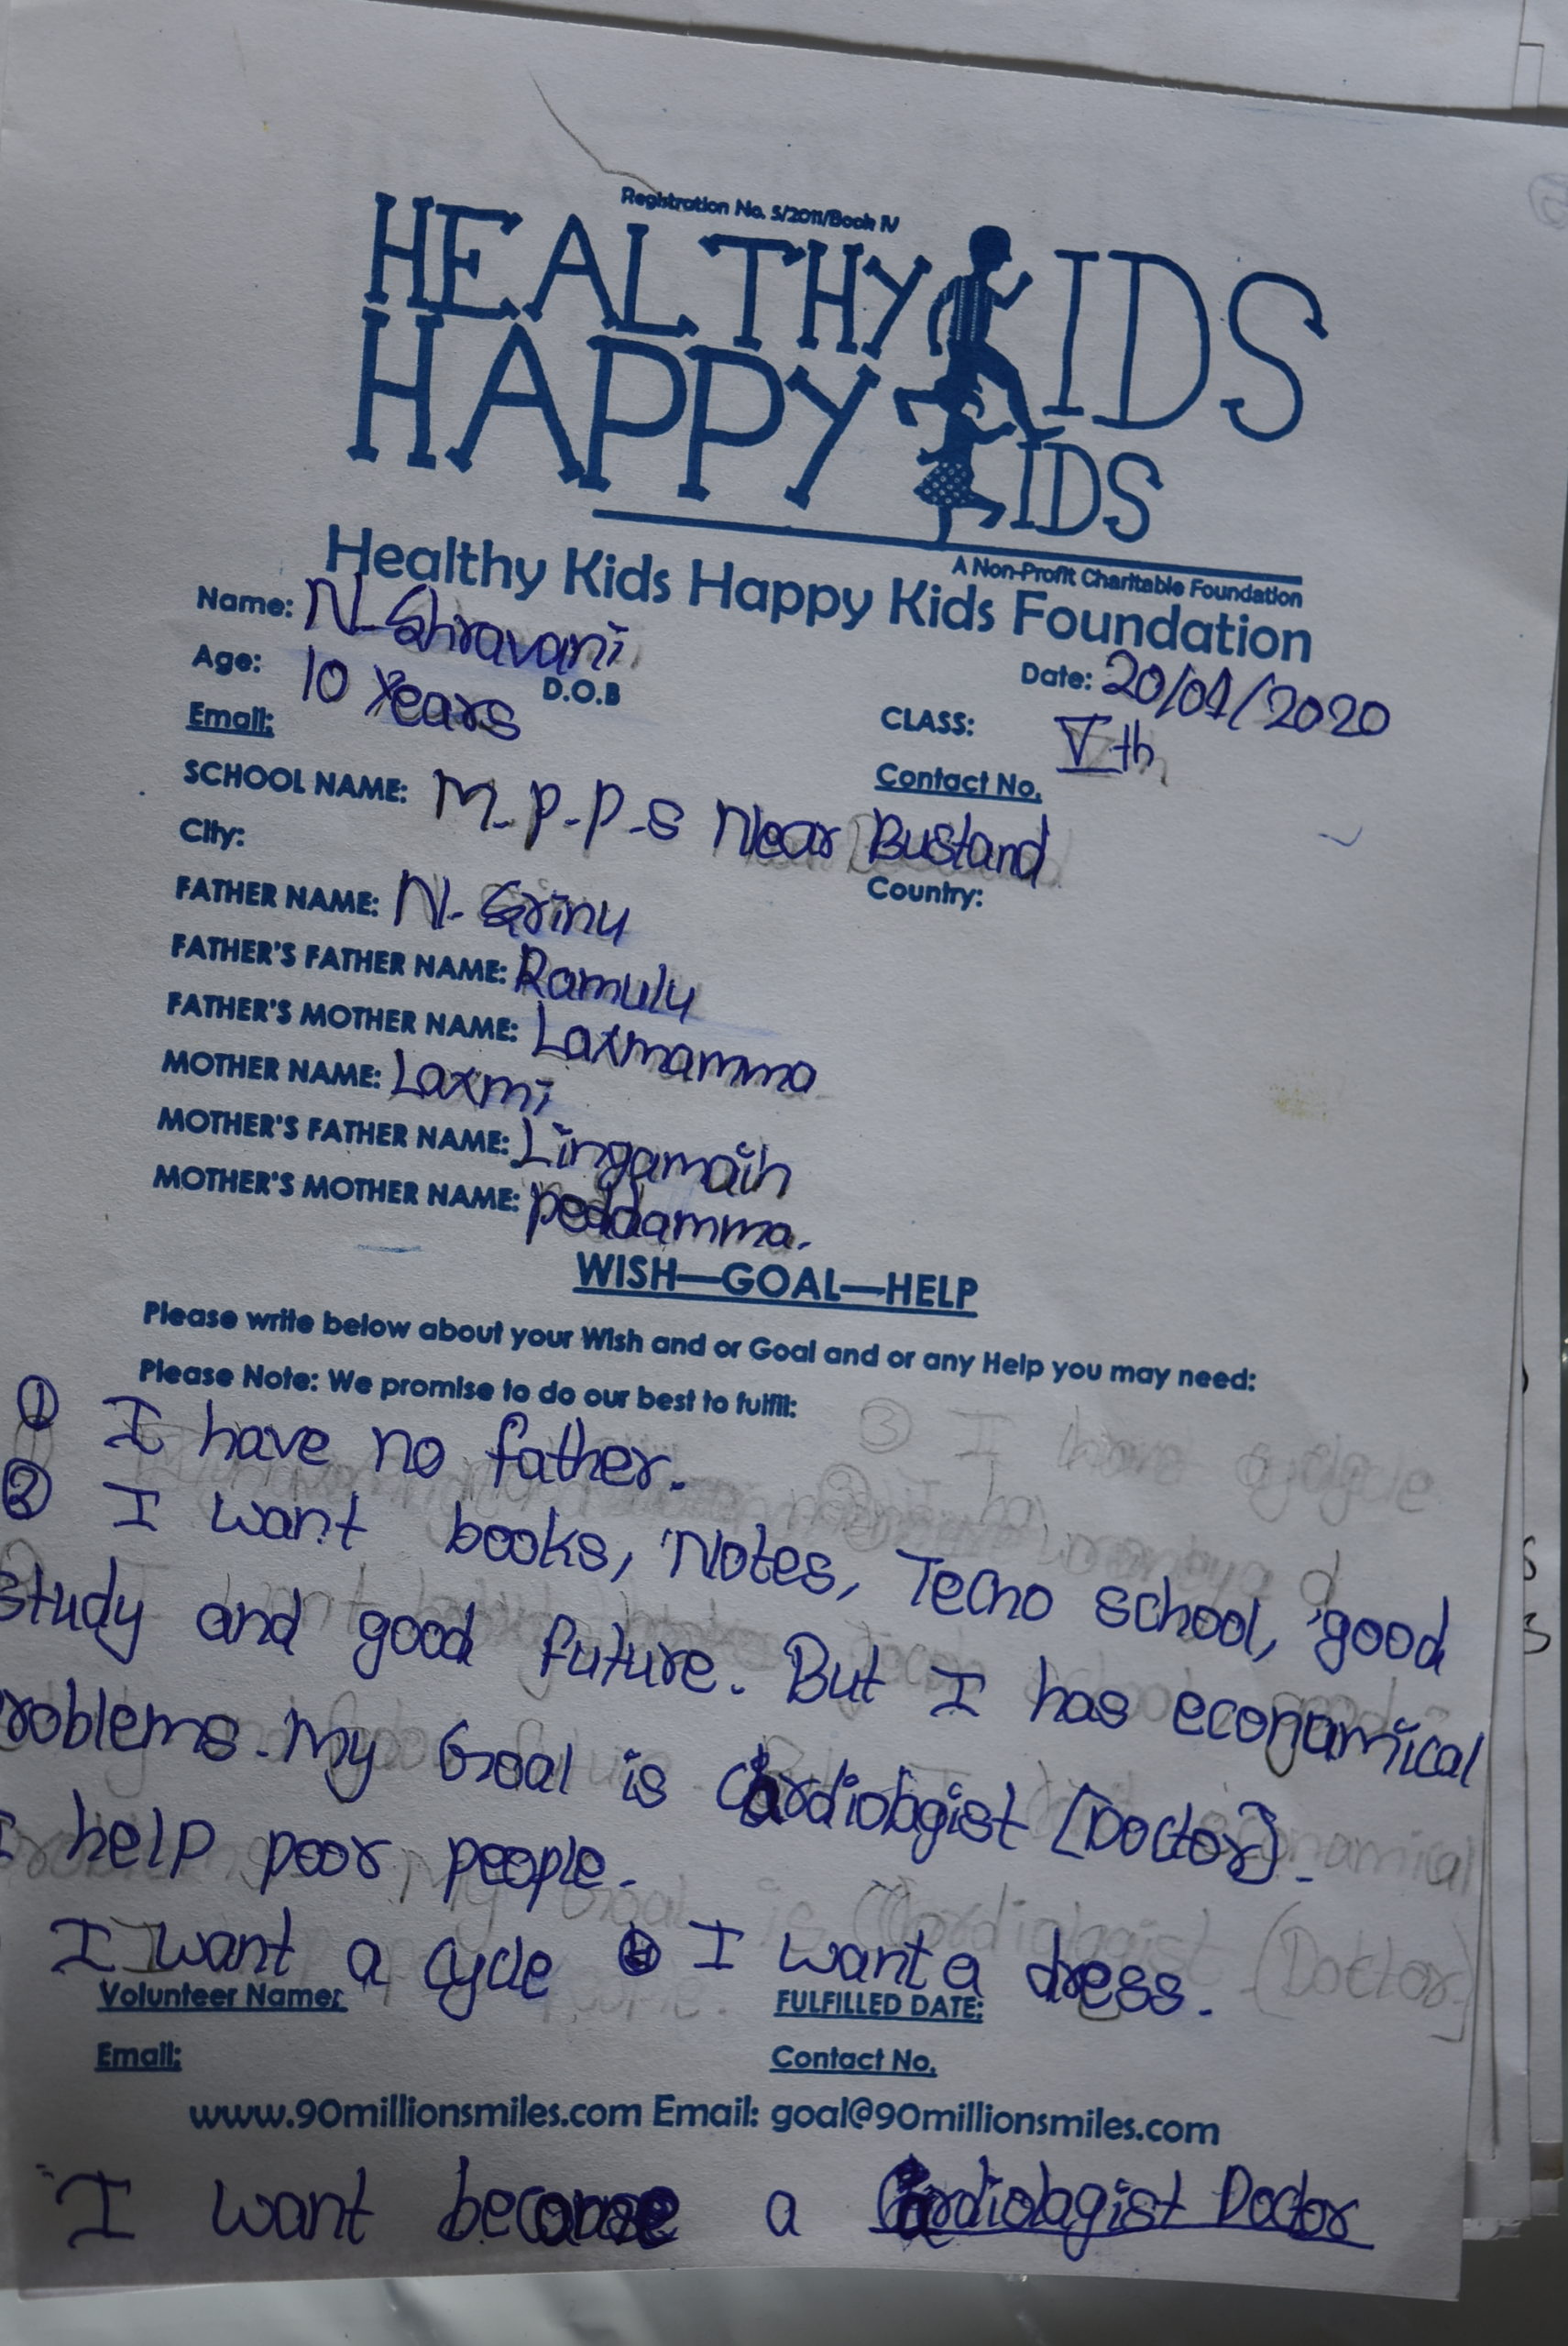 Registration No. 5/2011/Book IV
HEALTHY KIDS
HAPPY KIDS
A Non-Profit Charitable Foundation
Healthy Kids Happy Kids Foundation
Name: N. Shravani
Date: 20/01/2020
Age: 10 Years D.O.B
CLASS: Vth
Email:
Contact No.
SCHOOL NAME: M.P.P.S Near Bustand
City:
Country:
FATHER NAME: N. Srinu
FATHER'S FATHER NAME: Ramulu
FATHER'S MOTHER NAME: Laxmamma
MOTHER NAME: Laxmi
MOTHER'S FATHER NAME: Lingamaih
MOTHER'S MOTHER NAME: peddamma.
WISH—GOAL—HELP
Please write below about your Wish and or Goal and or any Help you may need:
Please Note: We promise to do our best to fulfil:
① I have no father.
② I want books, Notes, Techo school, good
study and good future. But I has economical
roblems. My Goal is Cardiologist [Doctor].
I help poor people.
I want a cycle ④ I want a dress.
Volunteer Name: FULFILLED DATE:
Email: Contact No.
www.90millionsmiles.com Email: goal@90millionsmiles.com
I want a Cardiologist Doctor